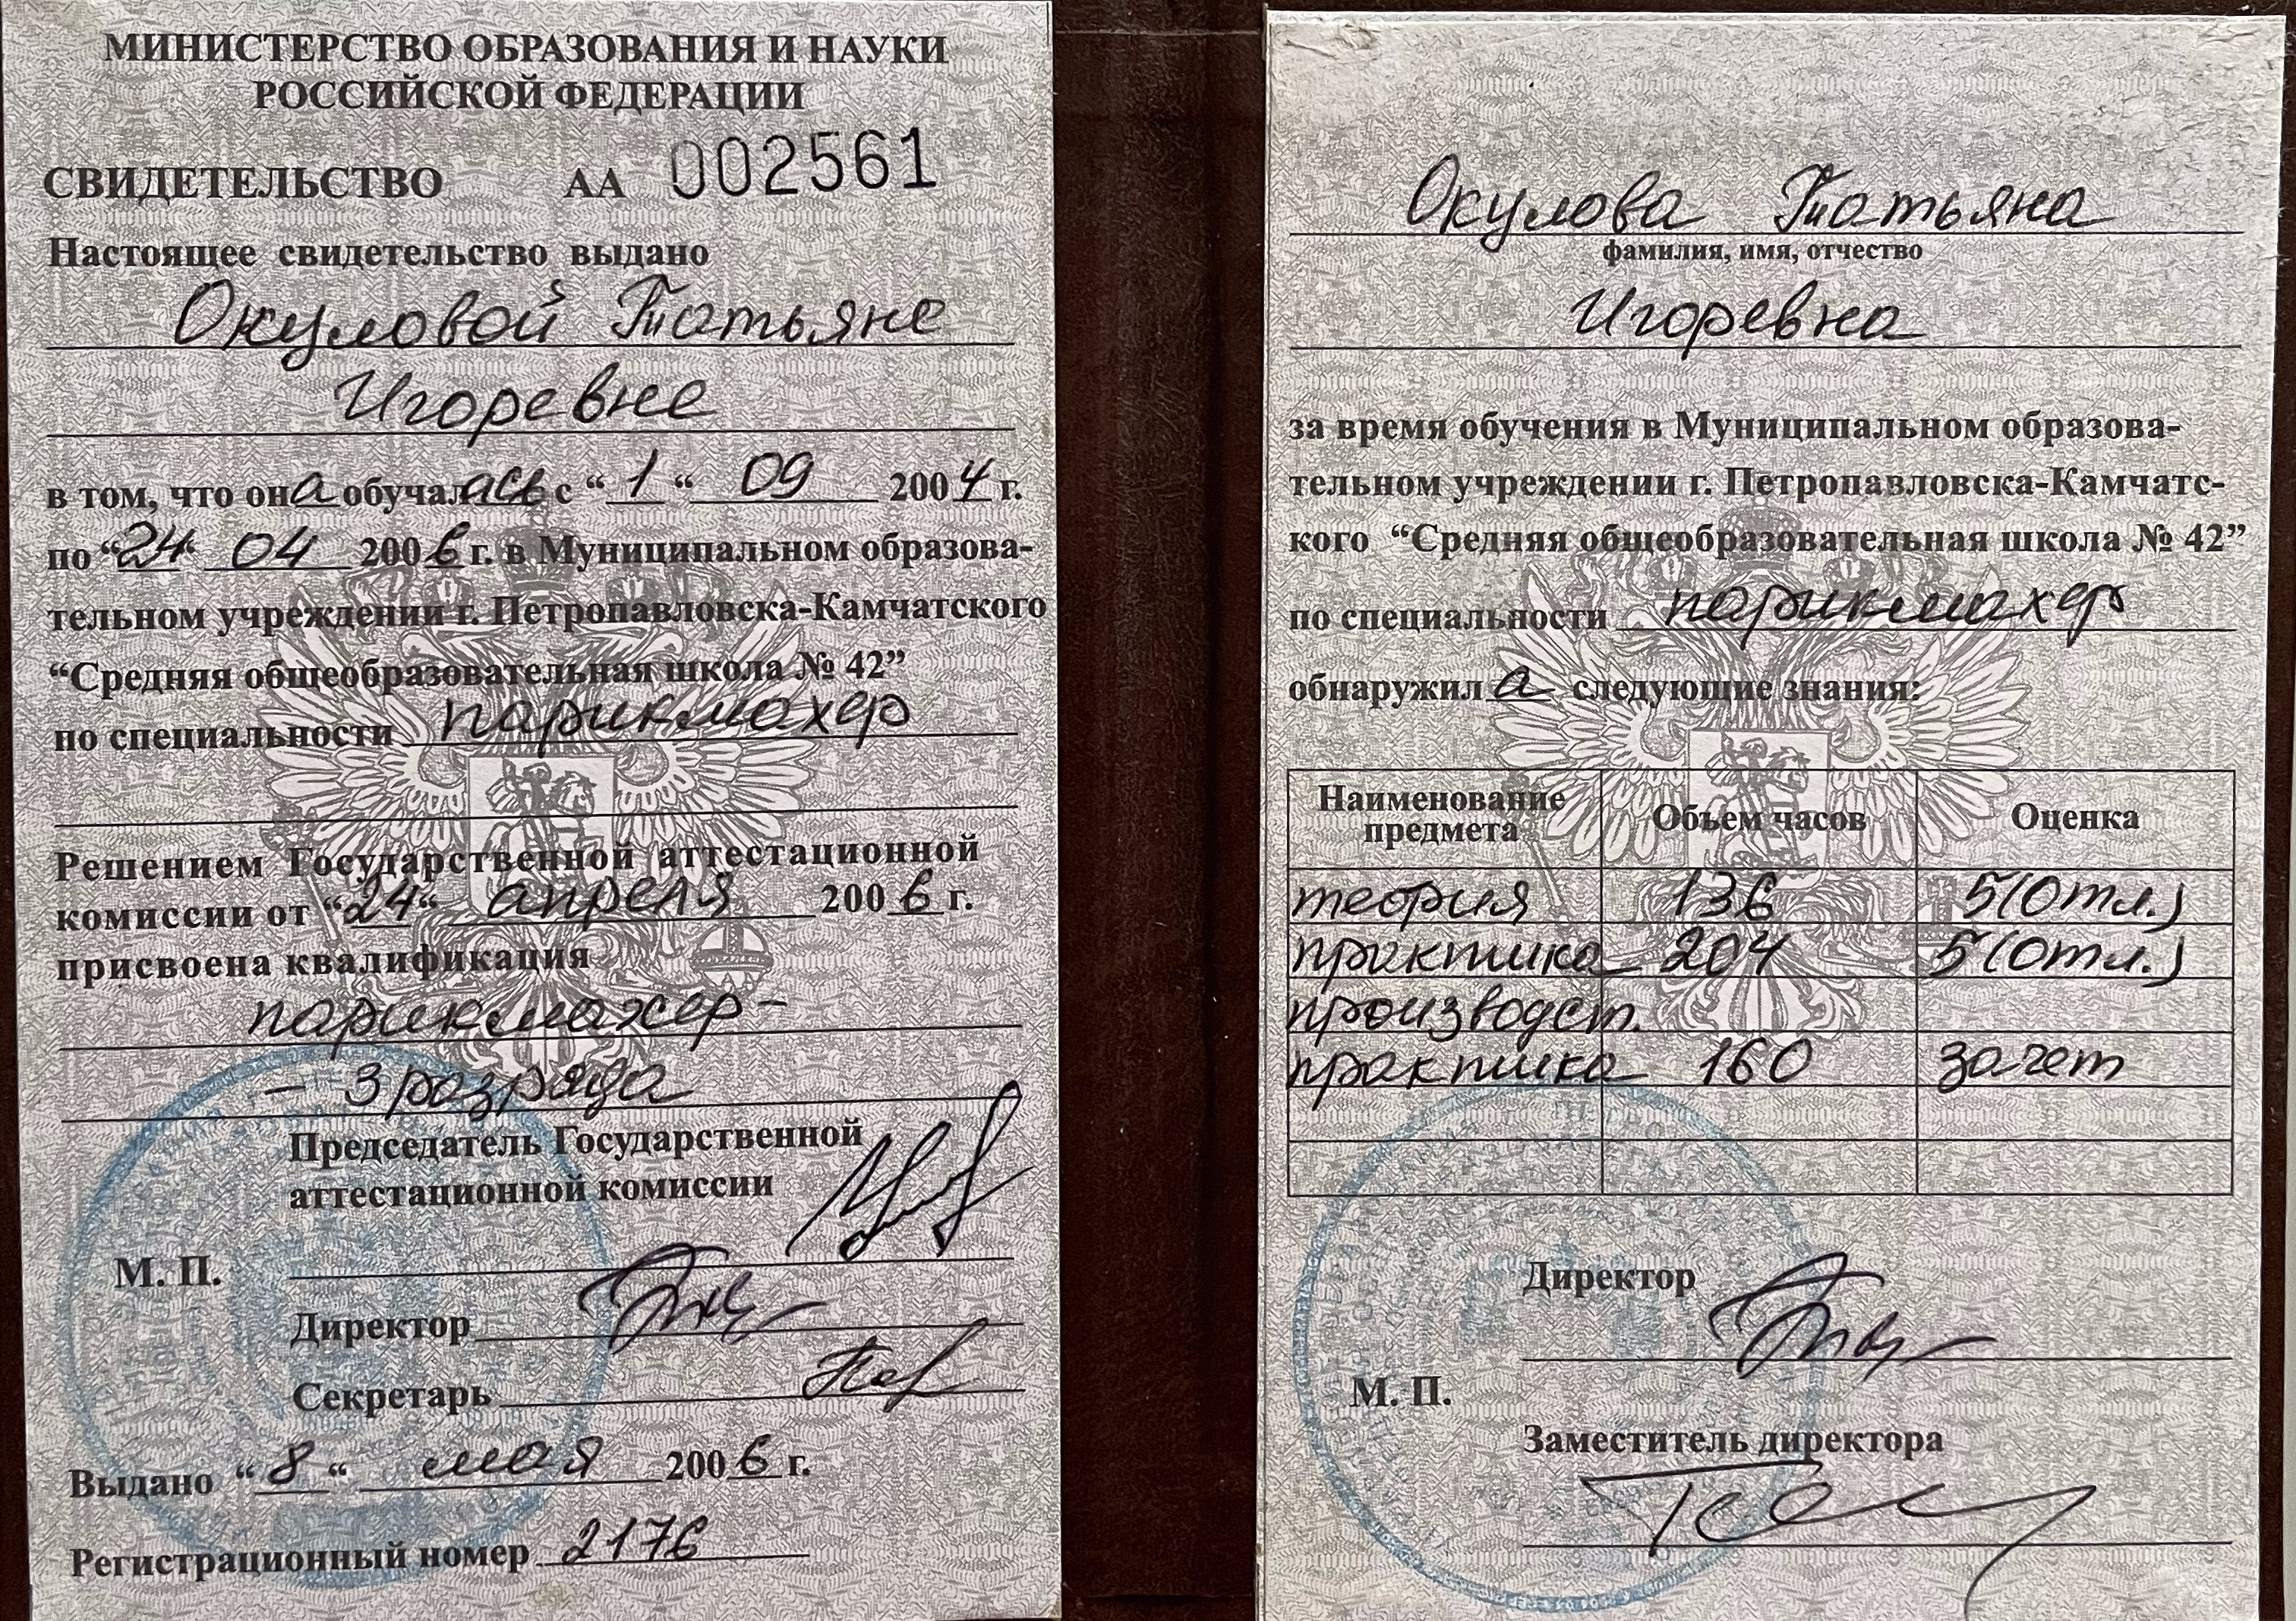 МИНИСТЕРСТВО ОБРАЗОВАНИЯ И НАУКИ
РОССИЙСКОЙ ФЕДЕРАЦИИ
СВИДЕТЕЛЬСТВО АА 002561
Настоящее свидетельство выдано
Окуловой Татьяне
Игоревне
в том, что она обучалась с “1“ 09 2004 г.
по “24“ 04 2006 г. в Муниципальном образова-
тельном учреждении г. Петропавловска-Камчатского
“Средняя общеобразовательная школа № 42”
по специальности парикмахер
Решением Государственной аттестационной
комиссии от “24“ апреля 2006 г.
присвоена квалификация
парикмахер -
- 3 разряда
Председатель Государственной
аттестационной комиссии
М. П.
Директор
Секретарь
Выдано “8“ мая 2006 г.
Регистрационный номер 2176
Окулова Татьяна
фамилия, имя, отчество
Игоревна
за время обучения в Муниципальном образова-
тельном учреждении г. Петропавловска-Камчатс-
кого “Средняя общеобразовательная школа № 42”
по специальности парикмахер
обнаружила следующие знания:
Наименование предмета Объем часов Оценка
теория 136 5(отл.)
практика 204 5(отл.)
производст.
практика 160 зачет
Директор
М. П.
Заместитель директора